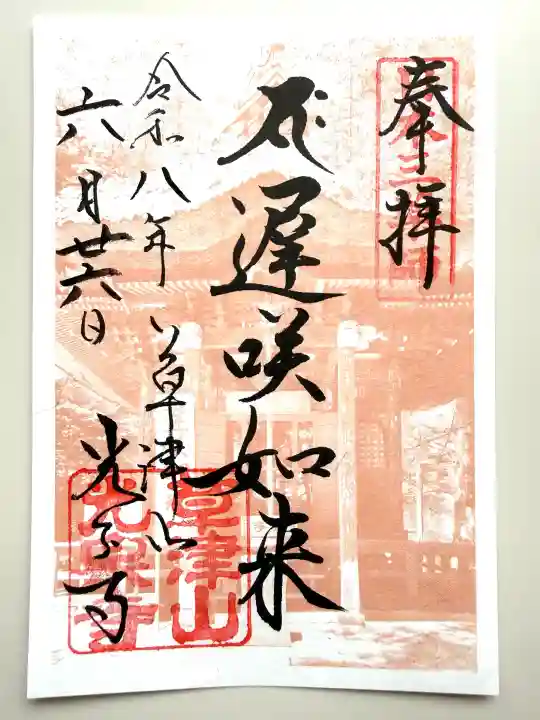 奉拝
遅咲如来
令和八年
六月廿六日
草津山
光泉寺
草津山
光泉寺